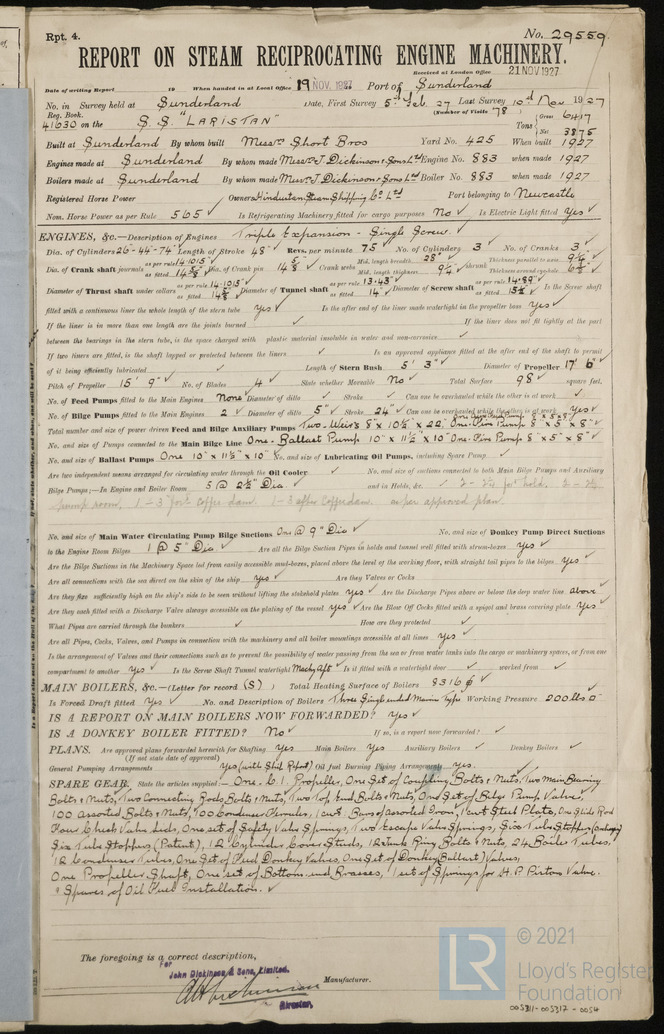 Rpt. 4.
No. 29559.
REPORT ON STEAM RECIPROCATING ENGINE MACHINERY.
Received at London Office 21 NOV 1927
Date of writing Report 19 When handed in at Local Office 19 NOV. 1927 Port of Sunderland
No. in Survey held at Sunderland Date, First Survey 5th Feb. 27 Last Survey 10th Nov 1927
Reg. Book. (Number of Visits 78)
41630 on the S.S. "LARISTAN" Tons Gross 6417 Net 3875
Built at Sunderland By whom built Messrs Short Bros Yard No. 425 When built 1927
Engines made at Sunderland By whom made Messrs J. Dickinson & Sons Ltd Engine No. 883 when made 1927
Boilers made at Sunderland By whom made Messrs J. Dickinson & Sons Ltd Boiler No. 883 when made 1927
Registered Horse Power Owners Hindustan Steam Shipping Co Ltd Port belonging to Newcastle
Nom. Horse Power as per Rule 565 Is Refrigerating Machinery fitted for cargo purposes No Is Electric Light fitted Yes
ENGINES, &c.—Description of Engines Triple Expansion - Single Screw.
Dia. of Cylinders 26-44-74 Length of Stroke 48" Revs. per minute 75 No. of Cylinders 3 No. of Cranks 3
Dia. of Crank shaft journals as per rule 14.1015 as fitted 14 5/8" Dia. of Crank pin 14 5/8" Crank webs Mid. length breadth 28" Mid. length thickness 9 1/4" shrunk Thickness parallel to axis 9 1/4" Thickness around eyehole
Diameter of Thrust shaft under collars as per rule 14.1015 as fitted 14 5/8" Diameter of Tunnel shaft as per rule 13.43" as fitted 14" Diameter of Screw shaft as per rule 14.89" as fitted Is the Screw shaft
fitted with a continuous liner the whole length of the stern tube yes Is the after end of the liner made watertight in the propeller boss yes
If the liner is in more than one length are the joints burned If the liner does not fit tightly at the part
between the bearings in the stern tube, is the space charged with plastic material insoluble in water and non-corrosive
If two liners are fitted, is the shaft lapped or protected between the liners Is an approved appliance fitted at the after end of the shaft to permit
of it being efficiently lubricated Length of Stern Bush 5' 3" Diameter of Propeller 17' 6"
Pitch of Propeller 15' 9" No. of Blades 4 State whether Moveable No Total Surface 98 square feet.
No. of Feed Pumps fitted to the Main Engines None Diameter of ditto Stroke Can one be overhauled while the other is at work
No. of Bilge Pumps fitted to the Main Engines 2 Diameter of ditto 5" Stroke 24" Can one be overhauled while the other is at work Yes
Total number and size of power driven Feed and Bilge Auxiliary Pumps Two-Weirs 8" x 10 1/2" x 22", One-Fire Pump 8" x 5" x 8"
No. and size of Pumps connected to the Main Bilge Line One-Ballast Pump 10" x 11 1/2" x 10" One-Fire Pump 8" x 5" x 8"
No. and size of Ballast Pumps One 10" x 11 1/2" x 10" No. and size of Lubricating Oil Pumps, including Spare Pump
Are two independent means arranged for circulating water through the Oil Cooler No. and size of suctions connected to both Main Bilge Pumps and Auxiliary
Bilge Pumps;—In Engine and Boiler Room 5 @ 2 1/2" Dia and in Holds, &c.
pump room. 1-3 for'd cofferdam. 1-3 after Cofferdam. as per approved plan.
No. and size of Main Water Circulating Pump Bilge Suctions One @ 9" Dia No. and size of Donkey Pump Direct Suctions
to the Engine Room Bilges 1 @ 5" Dia. Are all the Bilge Suction Pipes in holds and tunnel well fitted with strum-boxes yes
Are the Bilge Suctions in the Machinery Space led from easily accessible mud-boxes, placed above the level of the working floor, with straight tail pipes to the bilges yes
Are all connections with the sea direct on the skin of the ship yes Are they Valves or Cocks
Are they fixed sufficiently high on the ship's side to be seen without lifting the stokehold plates yes Are the Discharge Pipes above or below the deep water line above
Are they each fitted with a Discharge Valve always accessible on the plating of the vessel yes Are the Blow Off Cocks fitted with a spigot and brass covering plate yes
What Pipes are carried through the bunkers How are they protected
Are all Pipes, Cocks, Valves, and Pumps in connection with the machinery and all boiler mountings accessible at all times yes
Is the arrangement of Valves and their connections such as to prevent the possibility of water passing from the sea or from water tanks into the cargo or machinery spaces, or from one
compartment to another yes Is the Screw Shaft Tunnel watertight Machy Aft Is it fitted with a watertight door worked from
MAIN BOILERS, &c.—(Letter for record (S)) Total Heating Surface of Boilers 8316
Is Forced Draft fitted yes No. and Description of Boilers Three Single ended Marine Type Working Pressure 200 lbs
IS A REPORT ON MAIN BOILERS NOW FORWARDED? Yes
IS A DONKEY BOILER FITTED? No If so, is a report now forwarded?
PLANS. Are approved plans forwarded herewith for Shafting Yes Main Boilers Yes Auxiliary Boilers Donkey Boilers
(If not state date of approval)
General Pumping Arrangements Yes (with Ship Report) Oil fuel Burning Piping Arrangements yes.
SPARE GEAR. State the articles supplied:— One C.I. Propeller, One Set of Coupling Bolts & Nuts, Two Main Bearing
Bolts & Nuts, Two Connecting Rods Bolts & Nuts, Two Top End Bolts & Nuts, One Set of Bilge Pump Valves,
100 Assorted Bolts & Nuts, 100 Condenser Ferrules, 1 cwt Bars of assorted Iron, 1 cwt Steel Plate, One Slide Rod
Four Check Valve Lids, One set of Safety Valve Springs, Two Escape Valve Springs, Six Tube Stoppers (Ordinary)
Six Tube Stoppers (Patent), 12 Cylinder Cover Studs, 12 Junk Ring Bolts & Nuts, 24 Boiler Tubes,
12 Condenser Tubes, One Set of Feed Donkey Valves, One Set of Donkey (Ballast) Valves,
One Propeller Shaft, One set of Bottom end Brasses, 1 set of Springs for H.P. Piston Valve.
& Spares of Oil Fuel Installation.
The foregoing is a correct description,
For
John Dickinson & Sons, Limited.
Manufacturer.
Director.
LR
© 2021
Lloyd's Register
Foundation
005311-005317-0054